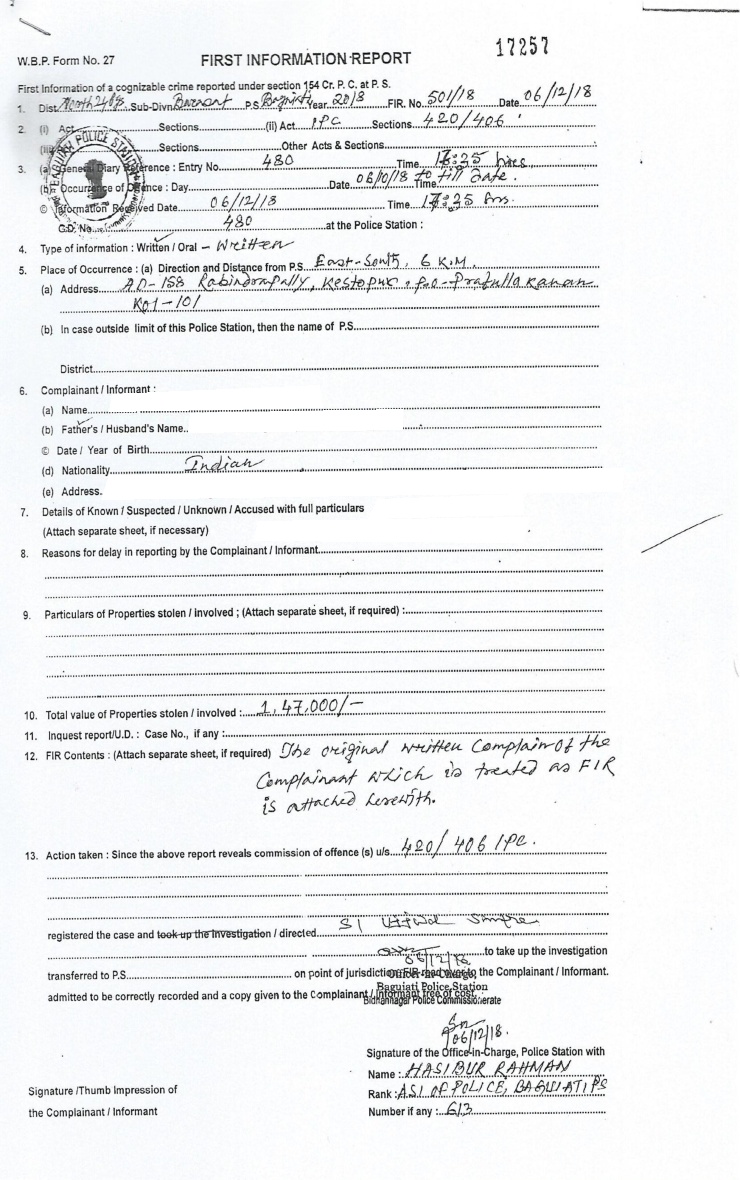 17257
W.B.P. Form No. 27 FIRST INFORMATION REPORT
First Information of a cognizable crime reported under section 154 Cr. P. C. at P. S.
1. Dist. North 24 Pgs Sub-Divn. Barasat P.S. Baguiati Year 2018 FIR. No. 501/18 Date 06/12/18
2. (i) Act Sections (ii) Act IPC Sections 420/406
(iii) Sections Other Acts & Sections
3. (a) General Diary Reference : Entry No. 480 Time 17:25 hrs
(b) Occurrence of Offence : Day Date 06/10/18 to till date. Time
© Information Received Date 06/12/18 Time 17:25 hrs.
G.D. No. 480 at the Police Station :
4. Type of information : Written / Oral - Written
5. Place of Occurrence : (a) Direction and Distance from P.S. East-South, 6 K.M.
(a) Address AD-158 Rabindrapally, Kestopur, P.O- Prafulla Kanan
Kol-101
(b) In case outside limit of this Police Station, then the name of P.S.
District
6. Complainant / Informant :
(a) Name
(b) Father's / Husband's Name..
© Date / Year of Birth
(d) Nationality Indian
(e) Address.
7. Details of Known / Suspected / Unknown / Accused with full particulars
(Attach separate sheet, if necessary)
8. Reasons for delay in reporting by the Complainant / Informant
9. Particulars of Properties stolen / involved ; (Attach separate sheet, if required) :
10. Total value of Properties stolen / involved : 1,47,000/-
11. Inquest report/U.D. : Case No., if any :
12. FIR Contents : (Attach separate sheet, if required) The original written Complain of the
Complainant which is treated as FIR
is attached herewith.
13. Action taken : Since the above report reveals commission of offence (s) u/s. 420/406 IPC.
registered the case and took up the investigation / directed SI Ujjwal
06/12/18 to take up the investigation
transferred to P.S. on point of jurisdiction FIR read over to the Complainant / Informant.
Officer-in-Charge
admitted to be correctly recorded and a copy given to the Complainant / Informant free of cost.
Baguiati Police Station
Bidhannagar Police Commissionerate
06/12/18.
Signature of the Office-in-Charge, Police Station with
Name : HASIBUR RAHMAN
Rank : ASI OF POLICE, BAGUIATI PS
Number if any : 613
Signature /Thumb Impression of
the Complainant / Informant